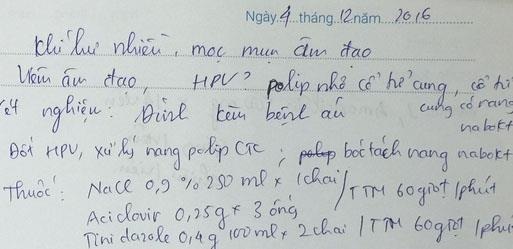 Ngày 4 tháng 12 năm 2016
khí hư nhiều, mọc mụn âm đạo
Viêm âm đạo, HPV? polip nhỏ cổ tử cung, cổ tử
cung có nang
nabokt
xét nghiệm: Đính kèm bệnh án
Đốt HPV, xử lý nang polip CTC; bóc tách nang nabokt
Thuốc: NaCl 0,9 % 250 ml x 1chai / TTM 60 giọt / phút
Aciclovir 0,25g x 3 ống
Tinidazole 0,4g 100ml x 2 chai / TTM 60 giọt / phút